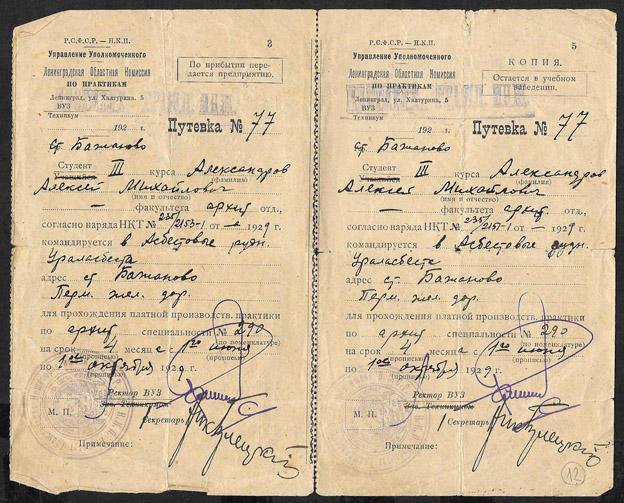 Р.С.Ф.С.Р. — Н.К.П.
Управление Уполномоченного
Ленинградская Областная Комиссия
ПО ПРАКТИКАМ
Ленинград, ул. Халтурина, 5
ВУЗ
Техникум
192 г.
3
По прибытии пере-
дается предприятию.
Путевка № 77
ст. Бажаново
Студент III курса Александров
Учащийся (фамилия)
Алексей Михайлович
(имя и отчество)
— факультета архит отд.,
согласно наряда НКТ № 235/2153-1 от — 1929 г.
командируется в Асбестовые рудн.
Ураласбеста
адрес ст. Бажаново
Перм. жел. дор.
для прохождения платной производств. практики
по архит специальности № 290
(по номенклатуре)
на срок 4 месяца с 1го июня
(прописью) (прописью)
по 1ое октября 1929 г.
(прописью)
Ректор ВУЗ
Зав. Техникумом
М. П.
Секретарь
Примечание:
Р.С.Ф.С.Р. — Н.К.П.
Управление Уполномоченного
Ленинградская Областная Комиссия
ПО ПРАКТИКАМ
Ленинград, ул. Халтурина, 5
ВУЗ
Техникум
192 г.
5
КОПИЯ.
Остается в учебном
заведении.
Путевка № 77
ст. Бажаново
Студент III курса Александров
Учащийся (фамилия)
Алексей Михайлович
(имя и отчество)
— факультета архит отд.,
согласно наряда НКТ № 235/2151-1 от — 1929 г.
командируется в Асбестовые рудн.
Ураласбеста
адрес ст. Бажаново
Перм. жел. дор.
для прохождения платной производств. практики
по архит специальности № 290
(по номенклатуре)
на срок 4 месяца с 1го июня
(прописью) (прописью)
по 1ое октября 1929 г.
(прописью)
Ректор ВУЗ
Зав. Техникумом
М. П.
Секретарь
Примечание:
12